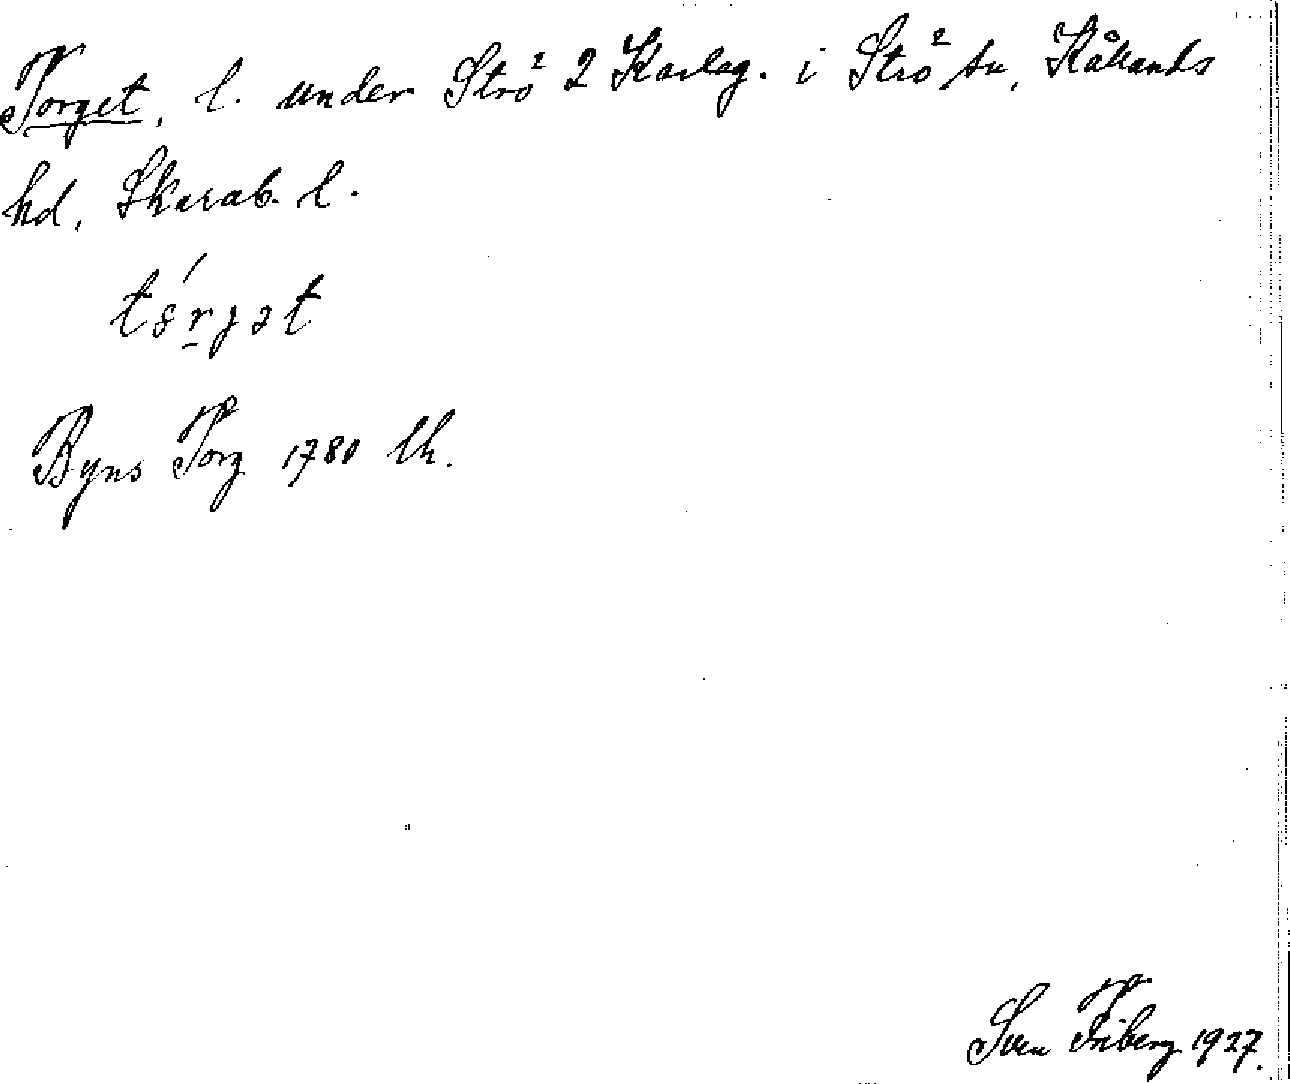 Torget, l. under Strö 2 Karlag. i Strö sn, Kållands
hd, Skarab. l.
tɞ́rgət
Byns Torg 1780 lh.
Sven Friberg 1927.